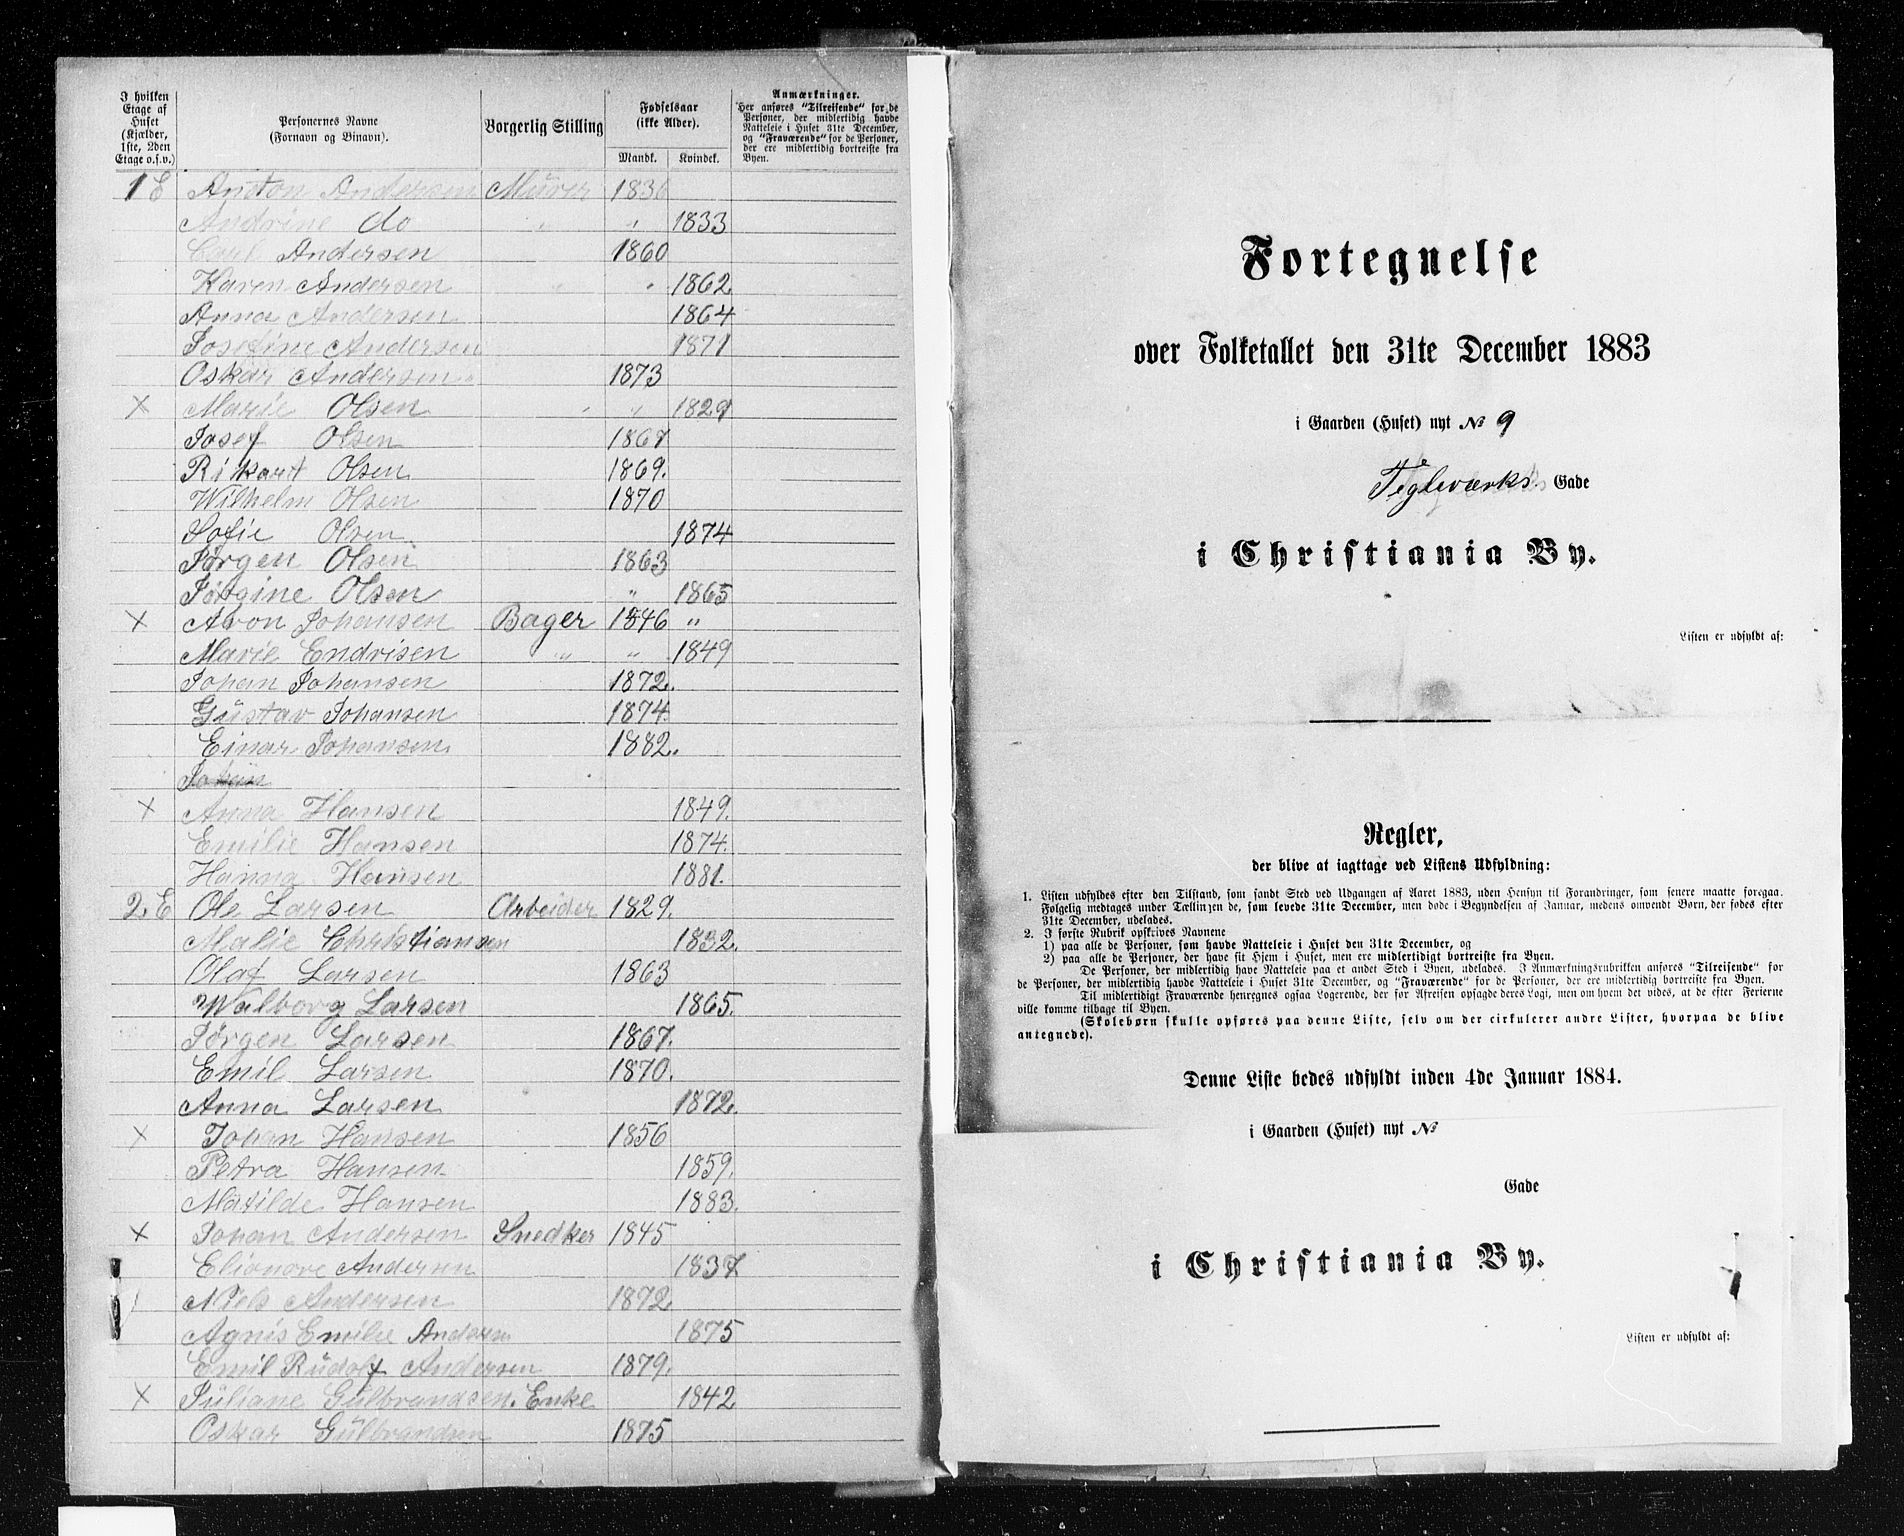 I hvilken Etage af Huset (Kjælder, 1ste, 2den Etage o.s.v.)
Personernes Navne (Fornavn og Binavn).
Borgerlig Stilling
Fødselsaar (ikke Alder).
Mandk. Kvindek.
Anmærkninger.
Her anføres "Tilreisende" for de
Personer, der midlertidig havde
Natteleie i Huset 31te December,
og "Fraværende" for de Personer,
der ere midlertidig bortreiste fra
Byen.
1 E Anton Andersen Mürer 1836
Andrine do " " 1833
Carl Andersen 1860
Karen Andersen " " 1862
Anna Andersen 1864
Josefine Andersen 1871
Oskar Andersen 1873
X Marie Olsen " " 1829
Josef Olsen 1867
Rikart Olsen 1869.
Wilhelm Olsen 1870
Sofie Olsen 1874
Jørgen Olsen 1863
Jørgine Olsen " 1865
X Aron Johansen Bager 1846 "
Marie Endrisen " " 1849
Johan Johansen 1872.
Güstav Johansen 1874.
Einar Johansen 1882.
X Anna Hansen 1849.
Emilie Hansen 1874.
Hanna Hansen 1881.
2. E Ole Larsen Arbeider 1829.
Malie Christiansen 1832.
Olaf Larsen 1863
Walborg Larsen 1865.
Jørgen Larsen 1867.
Emil Larsen 1870.
Anna Larsen 1872.
X Johan Hansen 1856
Petra Hansen 1859.
Matilde Hansen 1883.
X Johan Andersen Snedker 1845
Elionore Andersen 1837
Niels Andersen 1872.
Agnis Emilie Andersn 1875
Emil Rüdolf Andersen 1879.
X Jüliane Gülbrandsen. Enke 1842
Oskar Gülbrandsen 1875
Fortegnelse
over Folketallet den 31te December 1883
i Gaarden (Huset) nyt No 9
Tegleværks Gade
i Christiania By.
Listen er udfyldt af:
Regler,
der blive at iagttage ved Listens Udfyldning:
1. Listen udfyldes efter den Tilstand, som fandt Sted ved Udgangen af Aaret 1883, uden Hensyn til Forandringer, som senere maatte foregaa.
Følgelig medtages under Tællingen de, som levede 31te December, men døde i Begyndelsen af Januar, medens omvendt Børn, der fødes efter
31te December, udelades.
2. I første Rubrik opskrives Navnene
1) paa alle de Personer, som havde Natteleie i Huset den 31te December, og
2) paa alle de Personer, der have sit Hjem i Huset, men ere midlertidigt bortreiste fra Byen.
De Personer, der midlertidig have Natteleie paa et andet Sted i Byen, udelades. I Anmærkningsrubrikken anføres "Tilreisende" for
de Personer, der midlertidig havde Natteleie i Huset 31te December, og "Fraværende" for de Personer, der ere midlertidig bortreiste fra Byen.
Til midlertidigt Fraværende henregnes ogsaa Logerende, der før Afreisen opsagde deres Logi, men om hvem det vides, at de efter Ferierne
ville komme tilbage til Byen.
(Skolebørn skulle opføres paa denne Liste, selv om der cirkulerer andre Lister, hvorpaa de blive
antegnede).
Denne Liste bedes udfyldt inden 4de Januar 1884.
i Gaarden (Huset) nyt No
Gade
i Christiania By.
Listen er udfyldt af: